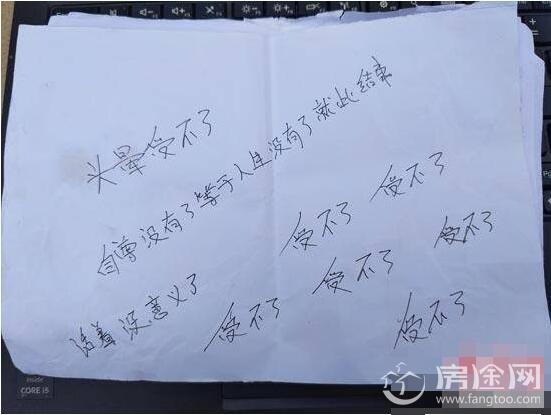 头晕受不了
自尊没有了等于人生没有了就此结束
受不了
受不了
受不了
活着没意义了
受不了
受不了
受不了
inside
CORE i5
房途网
www.fangtoo.com